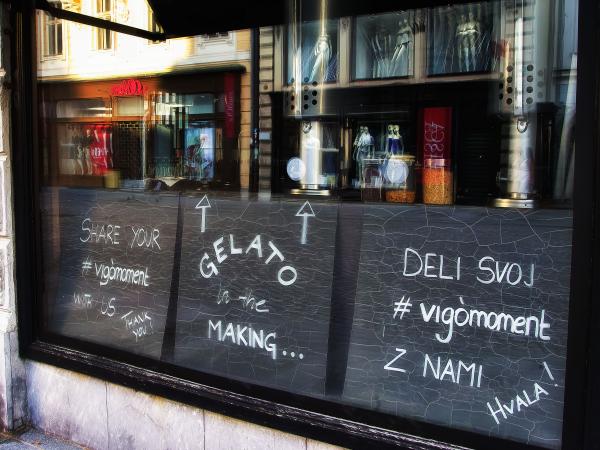 SHARE YOUR
#vigòmoment
WITH US
THANK
YOU!
GELATO
in the
MAKING...
DELI SVOJ
#vigòmoment
Z NAMI
HVALA!